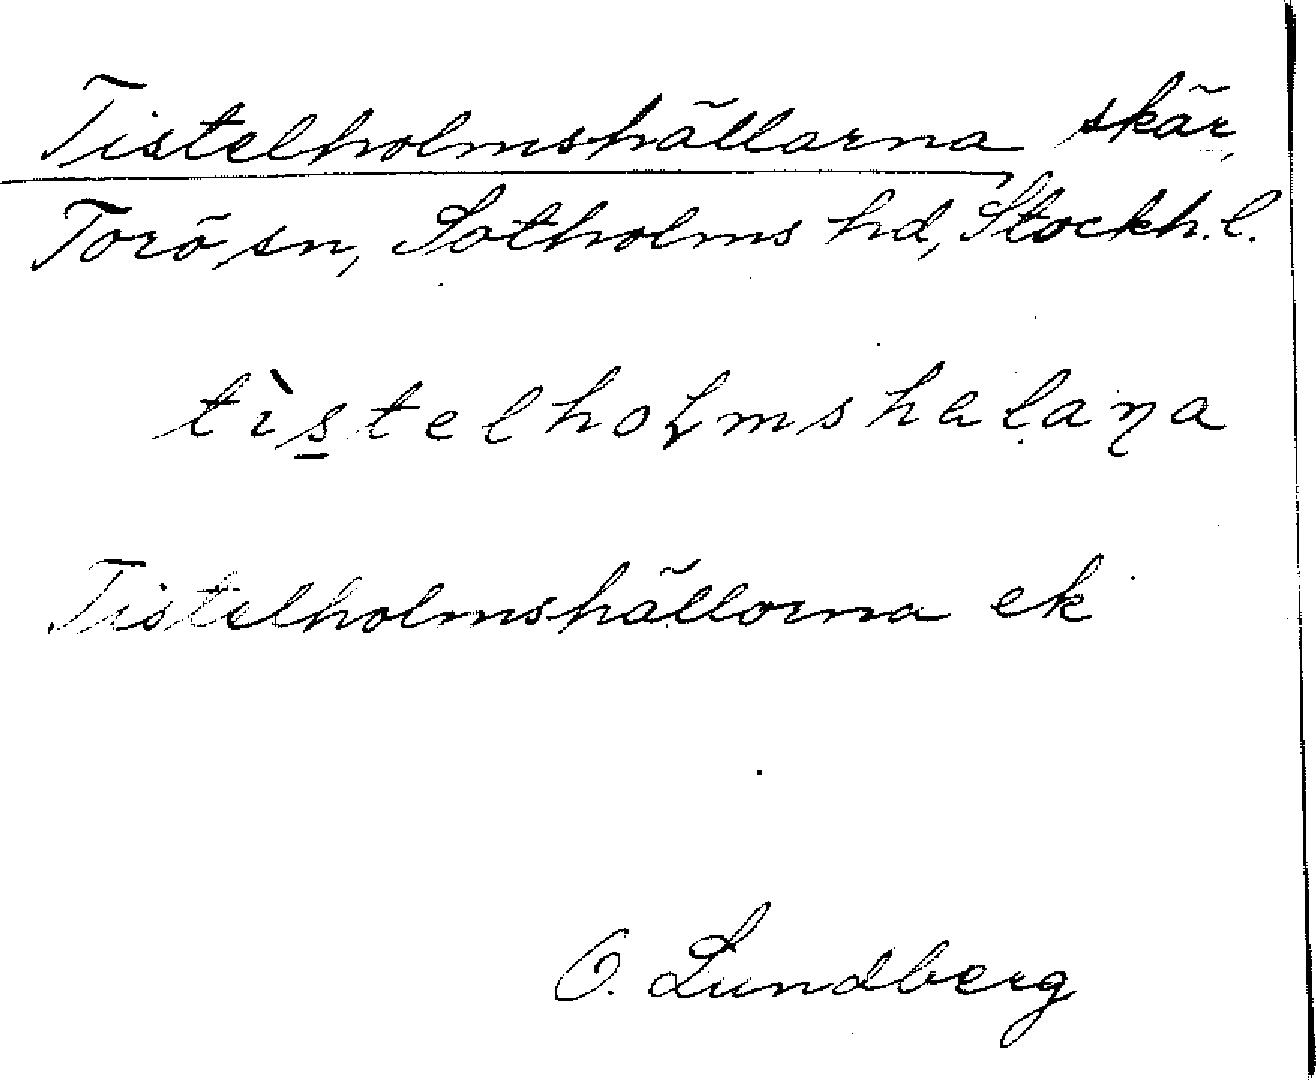 Tistelholmshällarna skär,
Torö sn, Sotholms hd, Stockh. l.
tìs̲telholmshalaṇa
Tistelholmshällorna ek
O. Lundberg